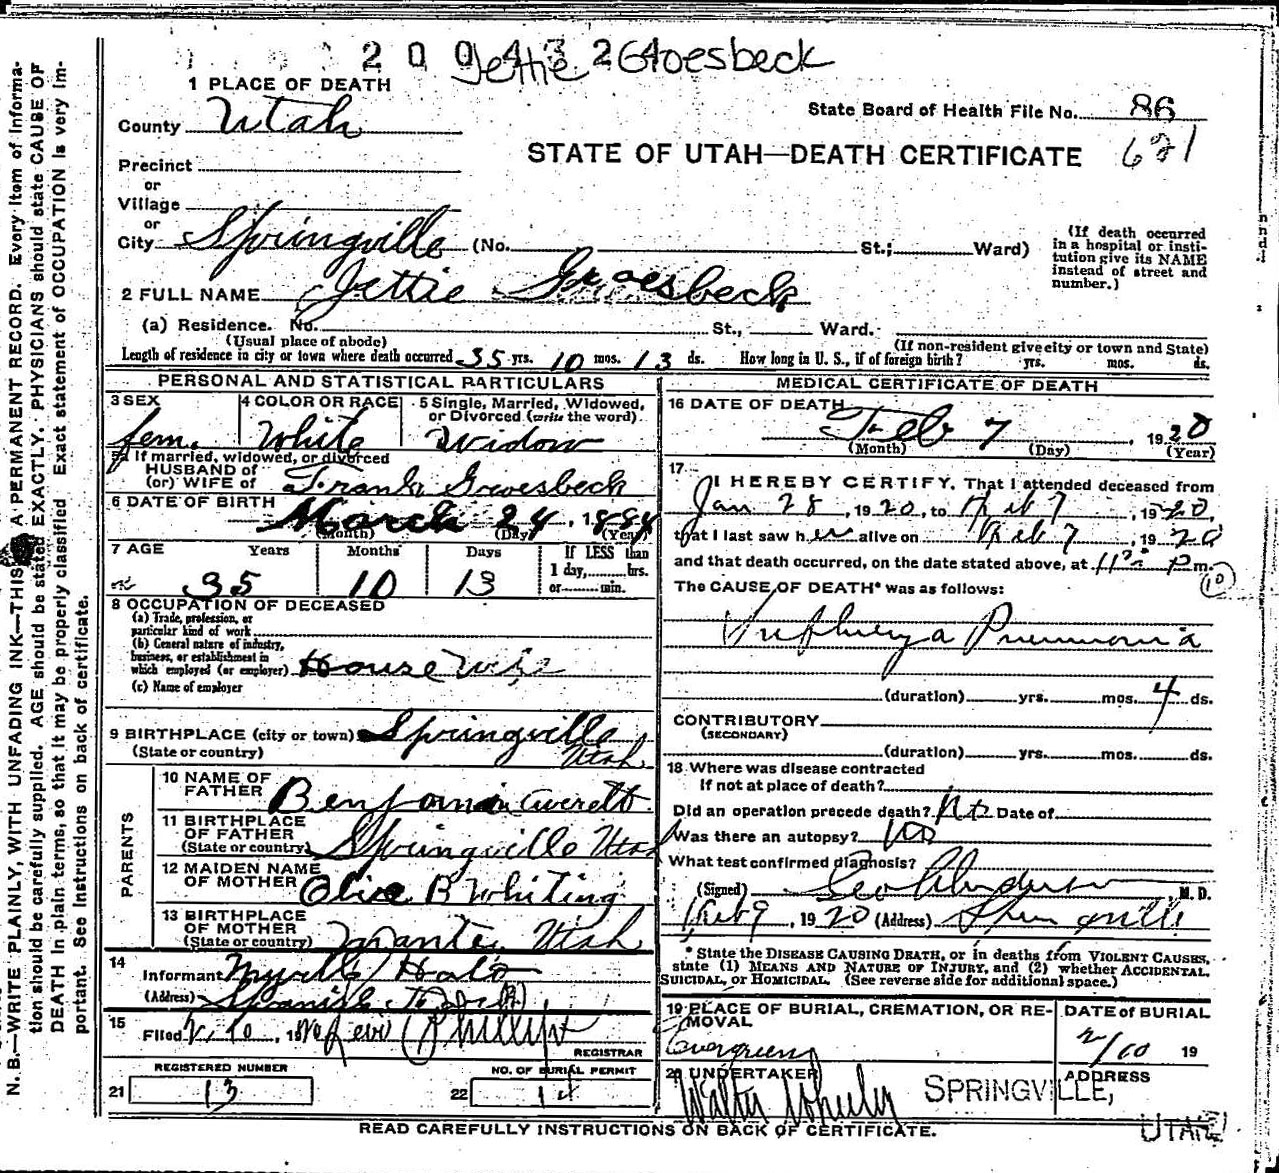 2 0 0 4 3 2 6
Jettie Groesbeck
1 PLACE OF DEATH
State Board of Health File No. 86
County Utah
621
STATE OF UTAH—DEATH CERTIFICATE
Precinct
or
Village
or
City Springville (No. St.; Ward)
(If death occurred in a hospital or institution give its NAME instead of street and number.)
2 FULL NAME Jettie Groesbeck
(a) Residence. No. St., Ward.
(Usual place of abode) (If non-resident give city or town and State)
Length of residence in city or town where death occurred 35 yrs. 10 mos. 13 ds. How long in U. S., if of foreign birth? yrs. mos. ds.
PERSONAL AND STATISTICAL PARTICULARS
3 SEX 4 COLOR OR RACE 5 Single, Married, Widowed, or Divorced (write the word)
fem. White Widow
5a If married, widowed, or divorced
HUSBAND of
(or) WIFE of Frank Groesbeck
6 DATE OF BIRTH
March 24, 1884
(Month) (Day) (Year)
7 AGE Years Months Days If LESS than 1 day, hrs. or min.
35 10 13
8 OCCUPATION OF DECEASED
(a) Trade, profession, or particular kind of work
(b) General nature of industry, business, or establishment in which employed (or employer) House wife
(c) Name of employer
9 BIRTHPLACE (city or town) Springville
(State or country) Utah
PARENTS
10 NAME OF FATHER Benjamin Averett
11 BIRTHPLACE OF FATHER (State or country) Springville Utah
12 MAIDEN NAME OF MOTHER Olive B Whiting
13 BIRTHPLACE OF MOTHER (State or country) Utah
14
Informant
(Address) Spanish
15
Filed 2, 10, 19 Phillips
REGISTRAR
REGISTERED NUMBER NO. OF BURIAL PERMIT
21 13 22 14
MEDICAL CERTIFICATE OF DEATH
16 DATE OF DEATH
Feb 7, 1920
(Month) (Day) (Year)
17
I HEREBY CERTIFY, That I attended deceased from
Jan 28, 1920, to Feb 7, 1920,
that I last saw her alive on Feb 7, 1920
and that death occurred, on the date stated above, at 11 P m.
The CAUSE OF DEATH* was as follows:
10
Influenza Pneumonia
(duration) yrs. mos. 4 ds.
CONTRIBUTORY
(SECONDARY)
(duration) yrs. mos. ds.
18 Where was disease contracted
If not at place of death?
Did an operation precede death? No Date of
Was there an autopsy? No
What test confirmed diagnosis?
(Signed) Geo Anderson M. D.
Feb 9, 1920 (Address) Springville
* State the DISEASE CAUSING DEATH, or in deaths from VIOLENT CAUSES,
state (1) MEANS AND NATURE OF INJURY, and (2) whether ACCIDENTAL,
SUICIDAL, or HOMICIDAL. (See reverse side for additional space.)
19 PLACE OF BURIAL, CREMATION, OR REMOVAL DATE of BURIAL
Evergreen 2/10 19
20 UNDERTAKER ADDRESS
Walter Wheeler SPRINGVILLE,
UTAH
READ CAREFULLY INSTRUCTIONS ON BACK OF CERTIFICATE.
N. B.—WRITE PLAINLY, WITH UNFADING INK—THIS IS A PERMANENT RECORD. Every item of information
should be carefully supplied. AGE should be stated EXACTLY. PHYSICIANS should state CAUSE OF
DEATH in plain terms, so that it may be properly classified. Exact statement of OCCUPATION is very important.
See instructions on back of certificate.